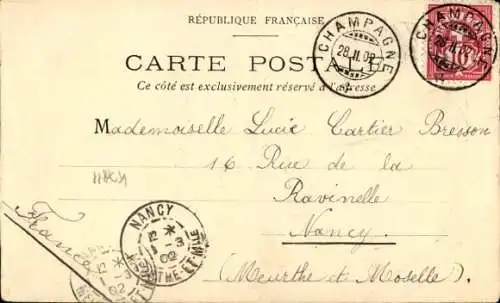 RÉPUBLIQUE FRANÇAISE
CHAMPAGNE
28.II.02
CHAMPAGNE
28.II.02
10
CARTE POSTALE
Ce côté est exclusivement réservé à l'adresse
Mademoiselle Lucie Cartier Bresson
16 Rue de la
Ravinelle
Nancy.
(Meurthe et Moselle).
France
NANCY
1-3
02
MEURTHE-ET-MLLE
02